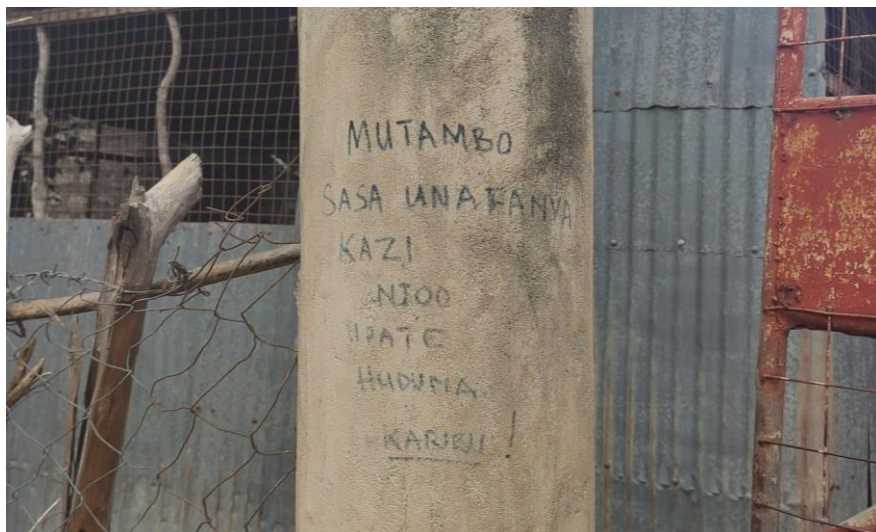 MUTAMBO
SASA UNAFANYA
KAZI
NJOO
UPATE
HUDUMA
KARIBU!